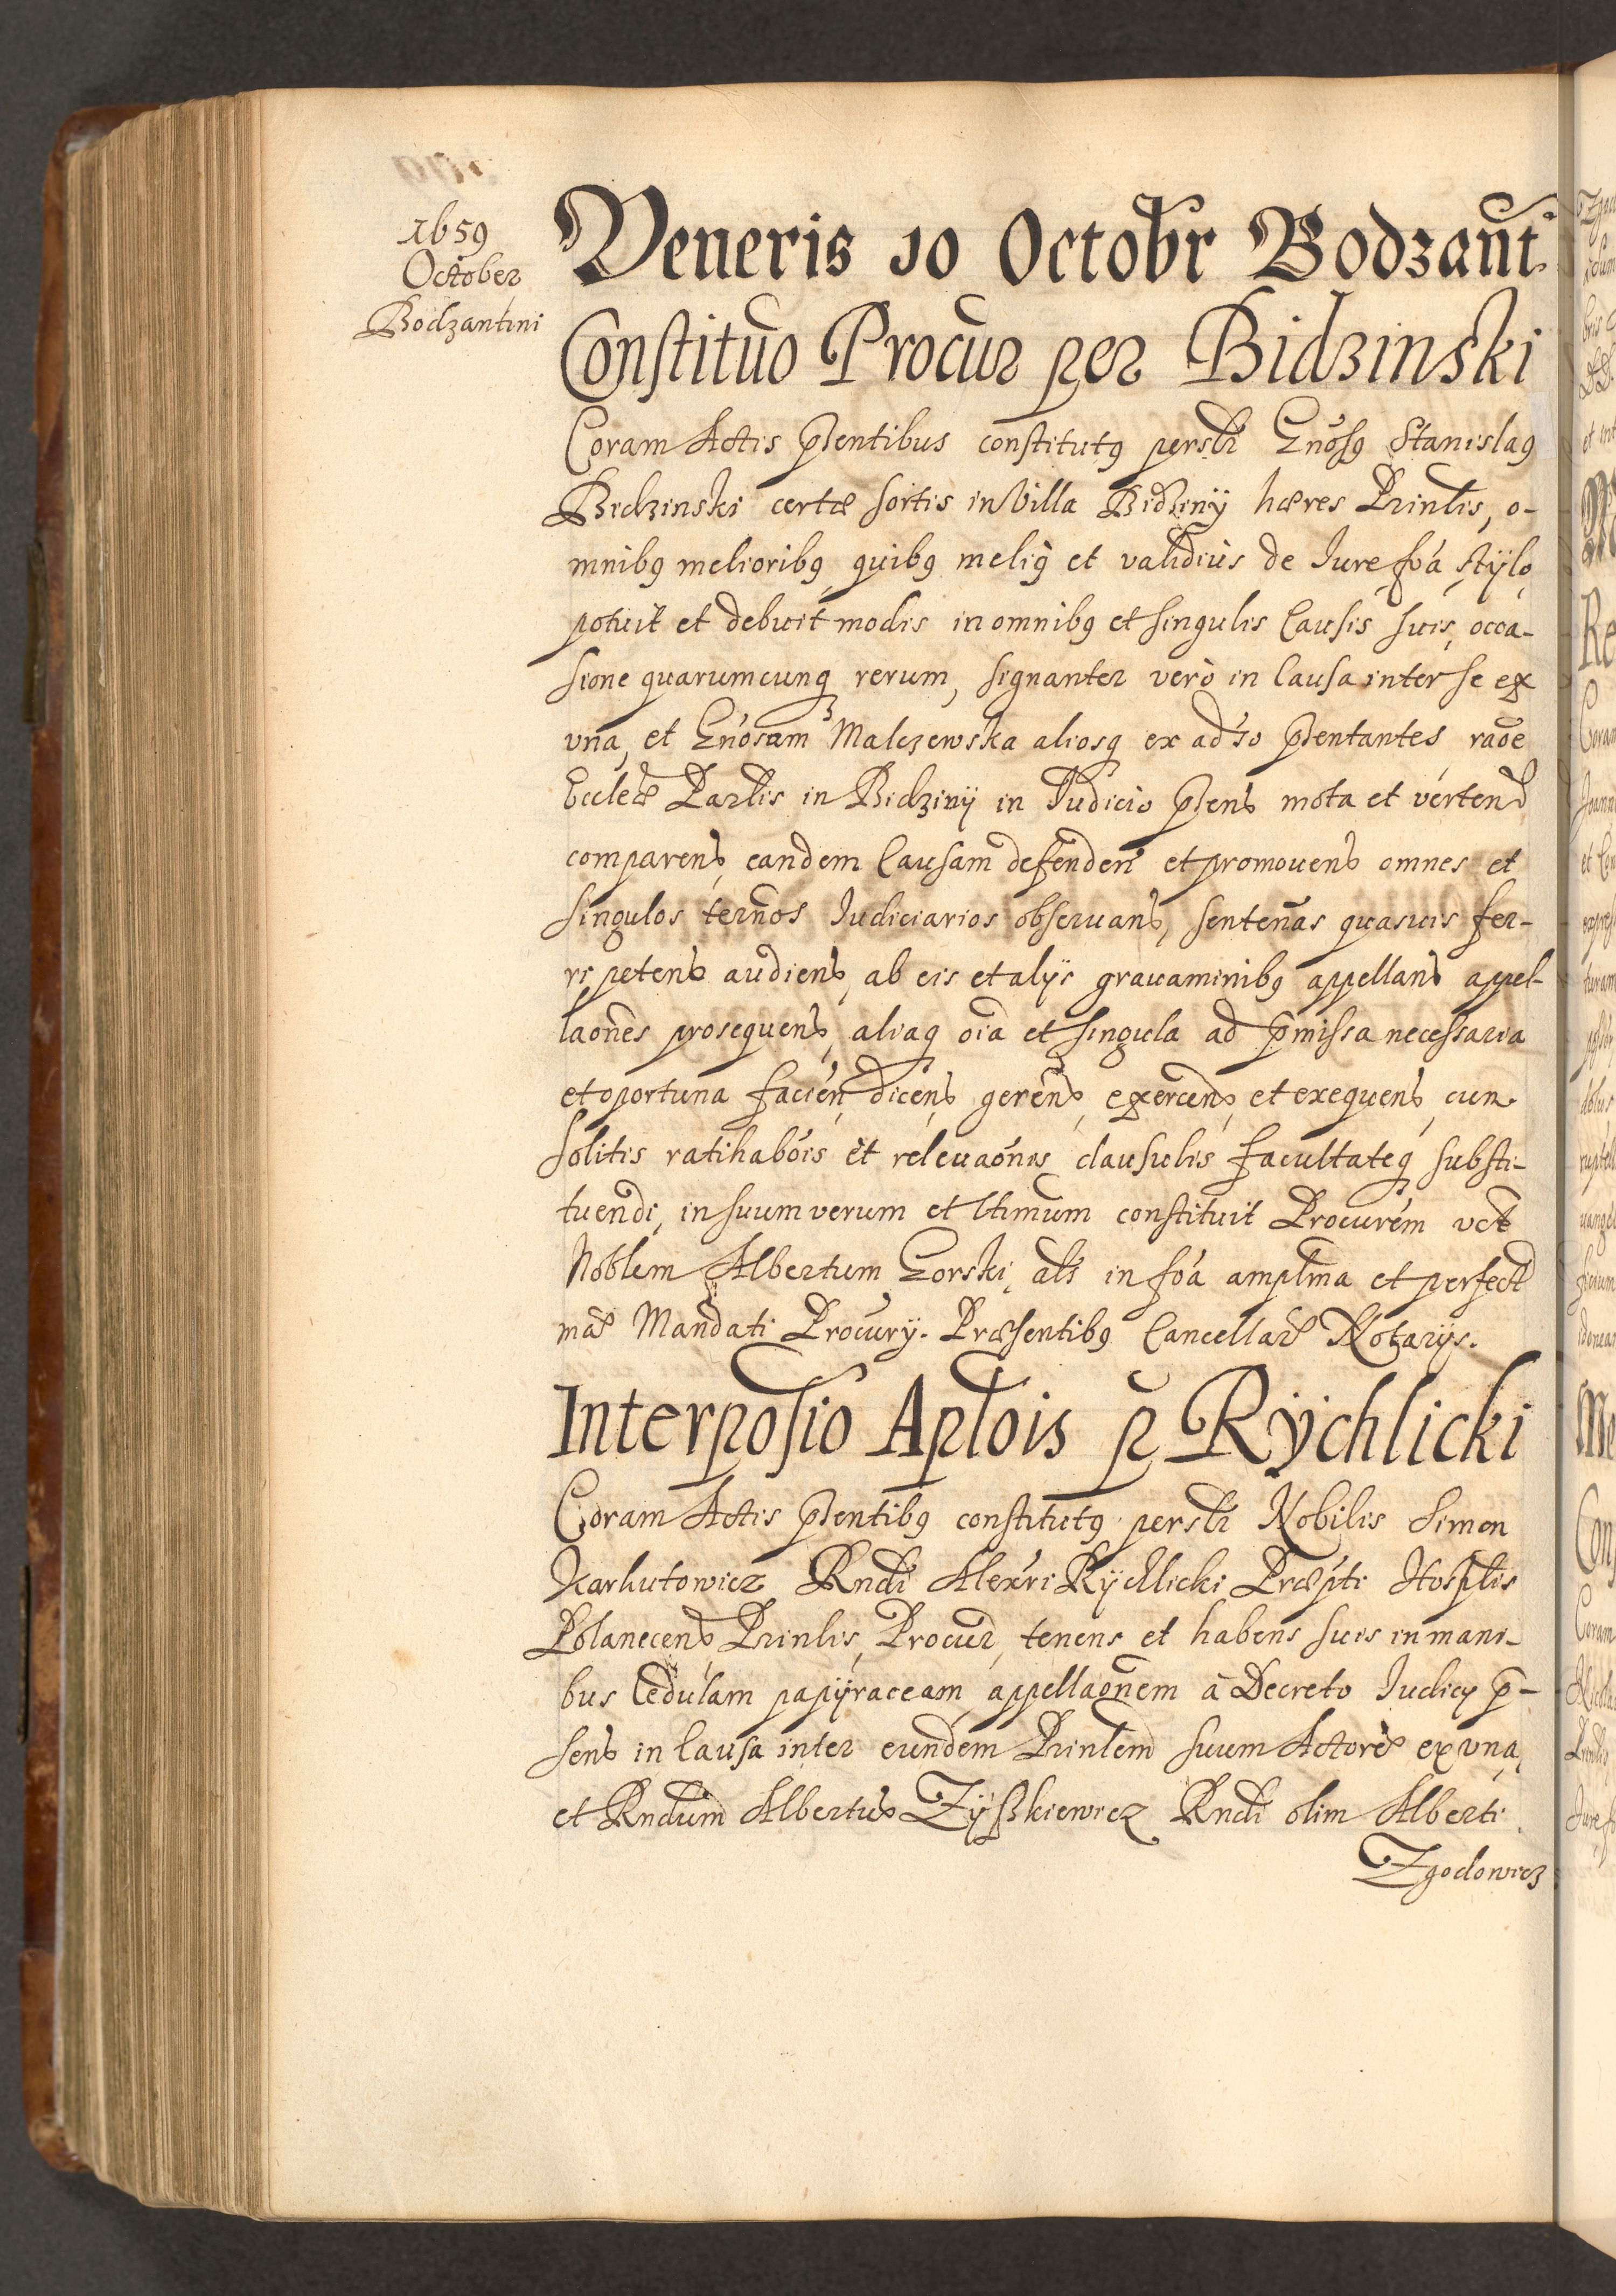 1659
October
Bodzantini
Veneris 10 Octobr Bodzant.
Constitúo Procur per Bidzinski
Coram Actis pñtentibus constitutq persłr Gñosq Stanislaq
Bidzinski certæ sortis in Villa Bidziny hæres Prinlis, o-
mnibq melioribq quibq meliq et validiùs de Iure, foá, stÿlo
potuit et debuit modis in omnibq et singulis Causis suis, occa-
sione quarumcunq rerum, signanter verò in Causa inter se ex
vna, et Gñosam Malczewska aliosq ex adso pñtentantes raõe
Eccleæ Parlis in Bidziny in Iudicio pñens mota et vertend
comparens, eandem Causam defenden et promouens omnes et
singulos termos Iudiciarios obseruans, senteñas quasuis fer-
ri petens audiens, ab eis et alÿs grauaminibq appellans appel-
laoñes prosequens, aliaq oia et singula ad pmissa necessaria
et oportuna facien, dicens, gerens, exercens, et exequens, cum
solitis ratihabõis et releuaõnis clausulis facultateq substi-
tuendi, in suum verum et ltimum constituit Procurem vct
Noblem Albertum Gorski, als in foá amplma et perfect
mæ Mandati Procurÿ. Præsentibq Cancellaræ Notarÿs.
Interposio Aplois p Rÿchlicki
Coram Actis pñtentibq constitutq persłr Nobilis Simon
Karhutowicz Rndi Alexri Rÿchlicki Præpti Hosplis
Polanecens, Prinlis, Procur, tenens et habens suis in mani-
bus Cedulam papÿraceam appellaoñem à Decreto Iudicÿ p-
sens in Causa inter eundem Prinlem suum Actoræ ex vna,
et Rndum Albertus Zÿszkiewicz Rndi olim Alberti
Zgodowicz